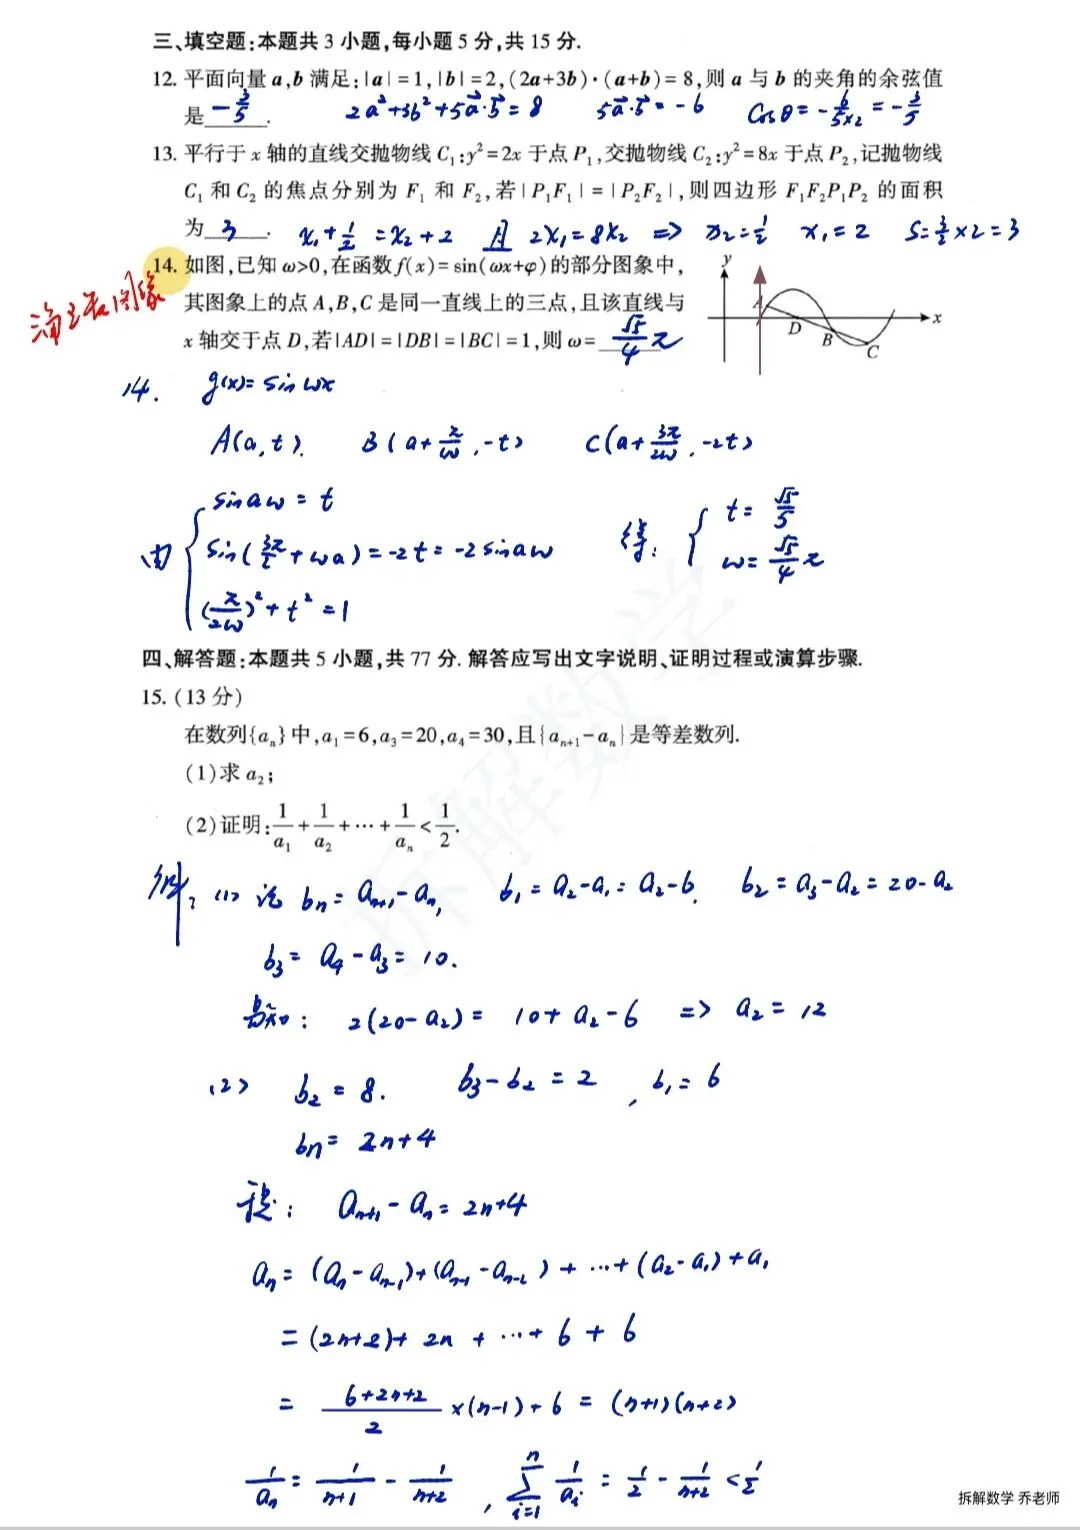 三、填空题:本题共3小题,每小题5分,共15分.
12. 平面向量a,b满足:|a|=1,|b|=2,(2a+3b)·(a+b)=8,则a与b的夹角的余弦值
是 -3/5 . 2a²+3b²+5a·b=8 5a·b=-6 cosθ=-6/(5×2)=-3/5
13. 平行于x轴的直线交抛物线C₁:y²=2x于点P₁,交抛物线C₂:y²=8x于点P₂,记抛物线
C₁和C₂的焦点分别为F₁和F₂,若|P₁F₁|=|P₂F₂|,则四边形F₁F₂P₁P₂的面积
为 3 . x₁+1/2=x₂+2 且 2x₁=8x₂ => x₂=1/2 x₁=2 S=3/2×2=3
14. 如图,已知ω>0,在函数f(x)=sin(ωx+φ)的部分图象中,
其图象上的点A,B,C是同一直线上的三点,且该直线与
x轴交于点D,若|AD|=|DB|=|BC|=1,则ω= √5/4 π
y
A
D
B
C
x
14. g(x)=sinωx
A(a,t). B(a+π/ω,-t) C(a+3π/2ω,-2t)
由 { sinaω=t
sin(3π/2+ωa)=-2t=-2sinaω
(π/2ω)²+t²=1
得: { t=√5/5
ω=√5/4 π
四、解答题:本题共5小题,共77分.解答应写出文字说明、证明过程或演算步骤.
15. (13分)
在数列{aₙ}中,a₁=6,a₃=20,a₄=30,且{aₙ₊₁-aₙ}是等差数列.
(1)求a₂;
(2)证明:1/a₁+1/a₂+…+1/aₙ<1/2.
解: (1) 记 bₙ=aₙ₊₁-aₙ, b₁=a₂-a₁=a₂-6. b₂=a₃-a₂=20-a₂
b₃=a₄-a₃=10.
易知: 2(20-a₂)=10+a₂-6 => a₂=12
(2) b₂=8. b₃-b₂=2, b₁=6
bₙ=2n+4
aₙ₊₁-aₙ=2n+4
aₙ=(aₙ-aₙ₋₁)+(aₙ₋₁-aₙ₋₂)+…+(a₂-a₁)+a₁
=(2n+2)+2n+…+6+6
=(6+2n+2)/2×(n-1)+6=(n+1)(n+2)
1/aₙ=1/(n+1)-1/(n+2), ∑ᵢ₌₁ⁿ 1/aᵢ=1/2-1/(n+2)<1/2
拆解数学
拆解数学 乔老师